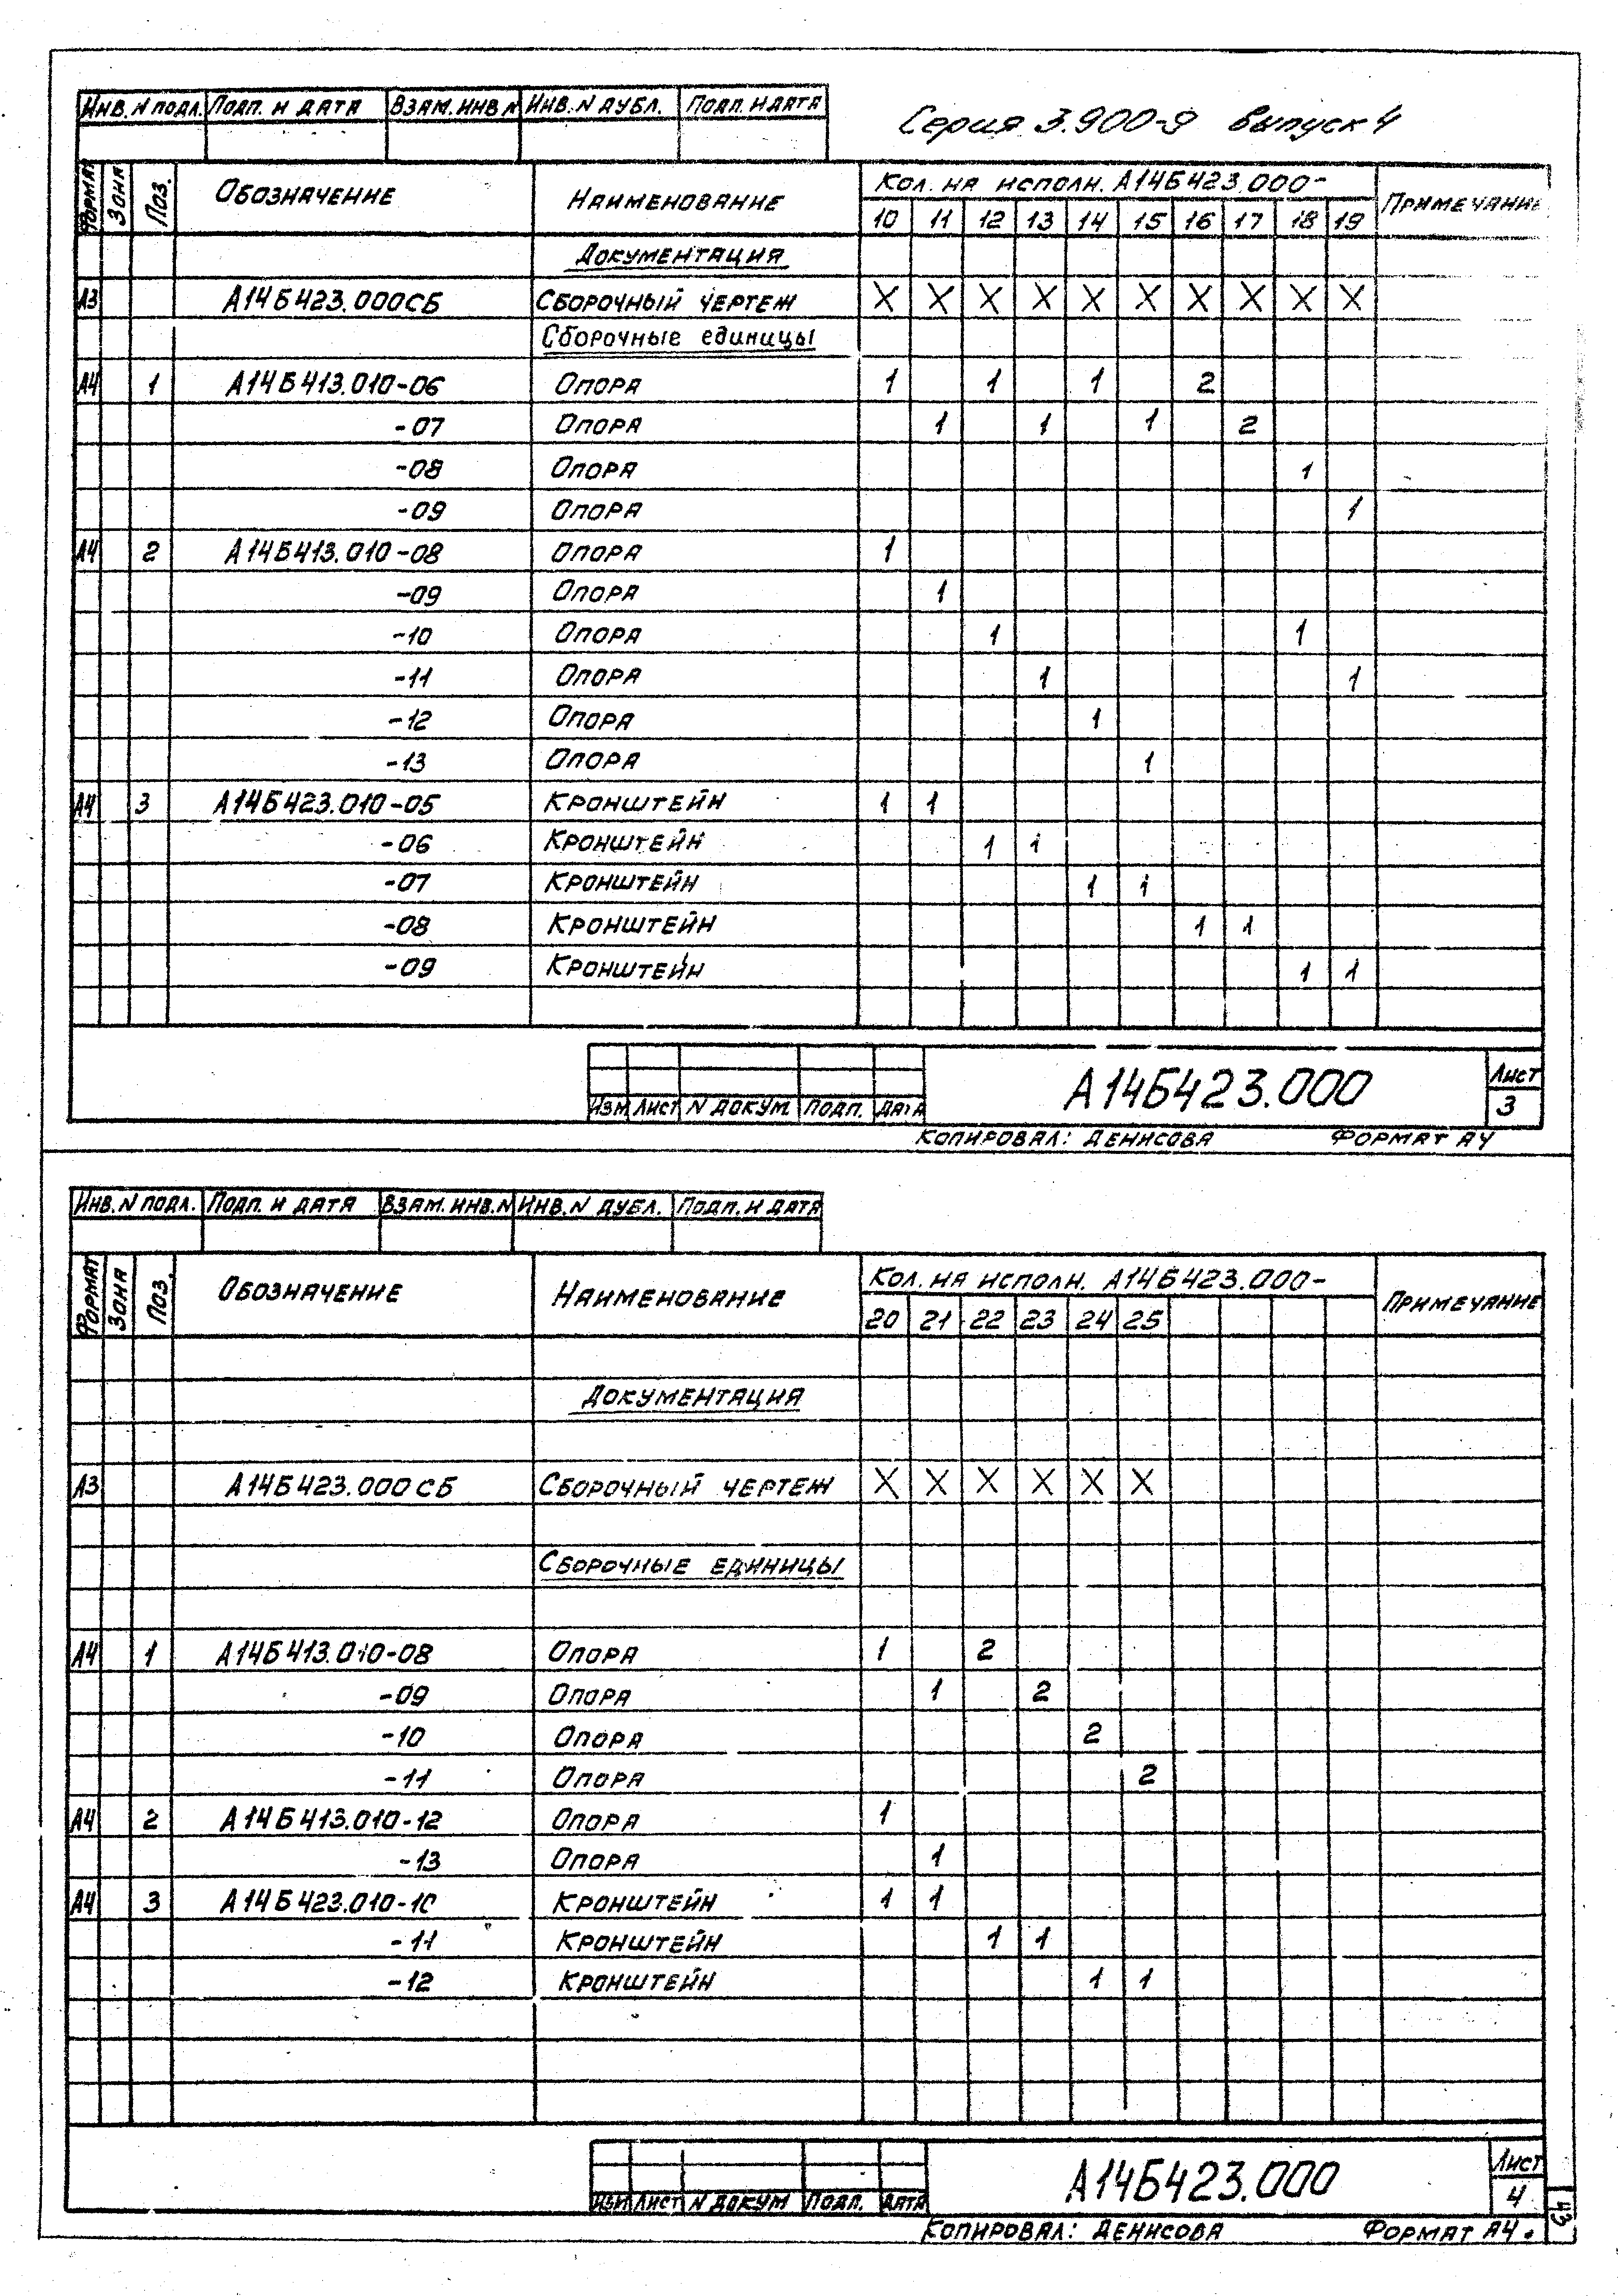 Серия 3.900-9 Выпуск 4
Инв. N подл. Подп. и дата Взам. инв. N Инв. N дубл. Подп. и дата
Формат Зона Поз. Обозначение Наименование Кол. на исполн. А14Б423.000- Примечание
10 11 12 13 14 15 16 17 18 19
Документация
А3 А14Б423.000СБ Сборочный чертеж X X X X X X X X X X
Сборочные единицы
А4 1 А14Б413.010-06 Опора 1 1 1 2
-07 Опора 1 1 1 2
-08 Опора 1
-09 Опора 1
А4 2 А14Б413.010-08 Опора 1
-09 Опора 1
-10 Опора 1 1
-11 Опора 1 1
-12 Опора 1
-13 Опора 1
А4 3 А14Б423.010-05 Кронштейн 1 1
-06 Кронштейн 1 1
-07 Кронштейн 1 1
-08 Кронштейн 1 1
-09 Кронштейн 1 1
Изм Лист N докум. Подп. Дата
А14Б423.000
Лист
3
Копировал: Денисова Формат А4
Инв. N подл. Подп. и дата Взам. инв. N Инв. N дубл. Подп. и дата
Формат Зона Поз. Обозначение Наименование Кол. на исполн. А14Б423.000- Примечание
20 21 22 23 24 25
Документация
А3 А14Б423.000СБ Сборочный чертеж X X X X X X
Сборочные единицы
А4 1 А14Б413.010-08 Опора 1 2
-09 Опора 1 2
-10 Опора 2
-11 Опора 2
А4 2 А14Б413.010-12 Опора 1
-13 Опора 1
А4 3 А14Б423.010-10 Кронштейн 1 1
-11 Кронштейн 1 1
-12 Кронштейн 1 1
Изм Лист N докум Подп. Дата
А14Б423.000
Лист
4
Копировал: Денисова Формат А4
43